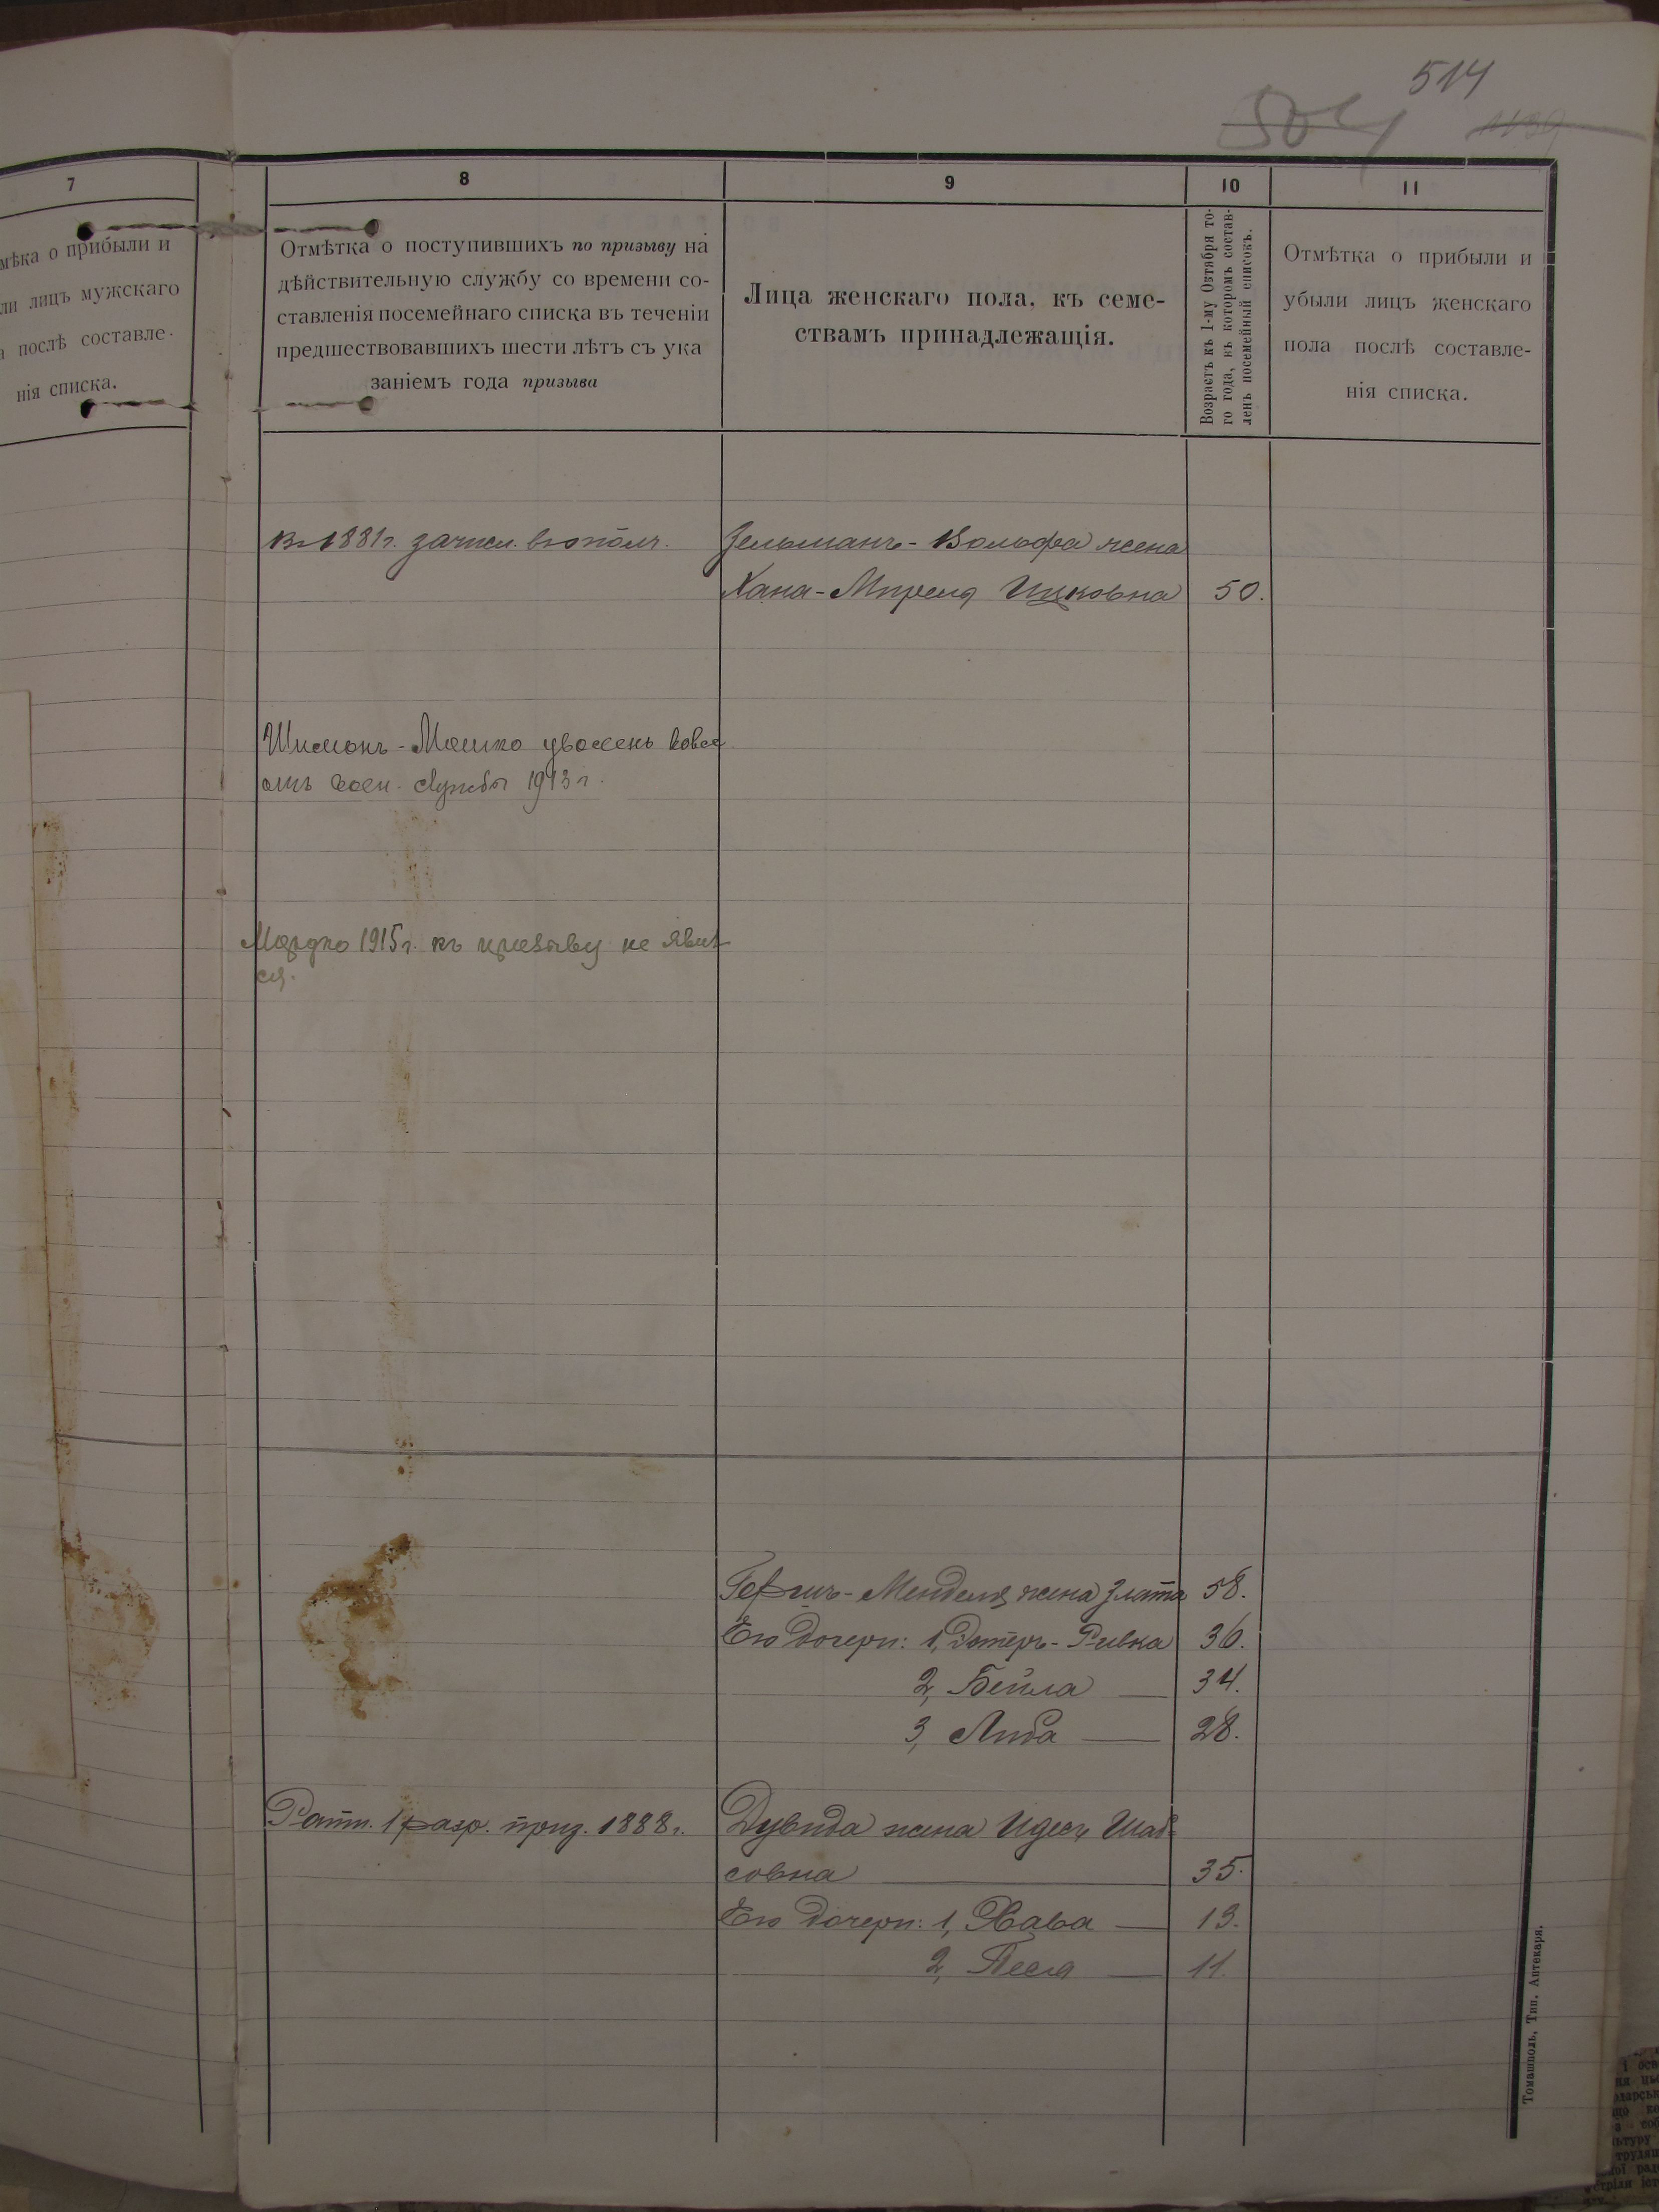 514
504
7
8
9
10
11
мѣка о прибыли и
ли лицъ мужскаго
послѣ составле-
нія списка.
Отмѣтка о поступившихъ по призыву на
дѣйствительную службу со времени со-
ставленія посемейнаго списка въ теченіи
предшествовавшихъ шести лѣтъ съ ука
заніемъ года призыва
Лица женскаго пола, къ семе-
ствамъ принадлежащія.
Возрастъ къ 1-му Октября то-
го года, къ которомъ состав-
ленъ посемейный списокъ.
Отмѣтка о прибыли и
убыли лицъ женскаго
пола послѣ составле-
нія списка.
В 1881 г. зачисл. в ополч.
Зельманъ-Вольфа жена
Хана-Миреля Ицковна 50.
Шимонъ-Мошко уволенъ вовсе
отъ воен. службы 1913 г.
Мордко 1915 г. къ призыву не явил
ся.
Гершъ-Менделя жена Злата 58.
Его дочери: 1, Эстеръ-Ривка 36.
2, Бейла 34.
3, Либа 28.
Ратн. 1 разр. приз. 1888 г.
Дувида жена Идесъ Шаб-
совна 35.
Его дочери: 1, Хава 13.
2, Песя 11.
Томашполь, Тип. Аптекаря.